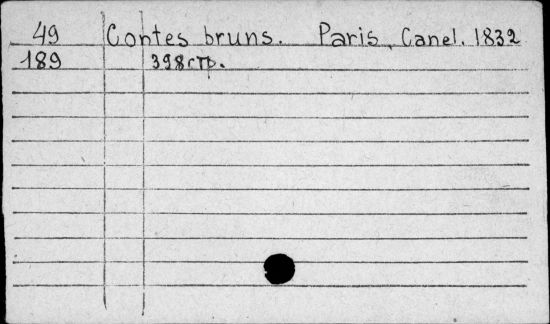 49 Contes bruns. Paris, Canel. 1832
189 398 стр.